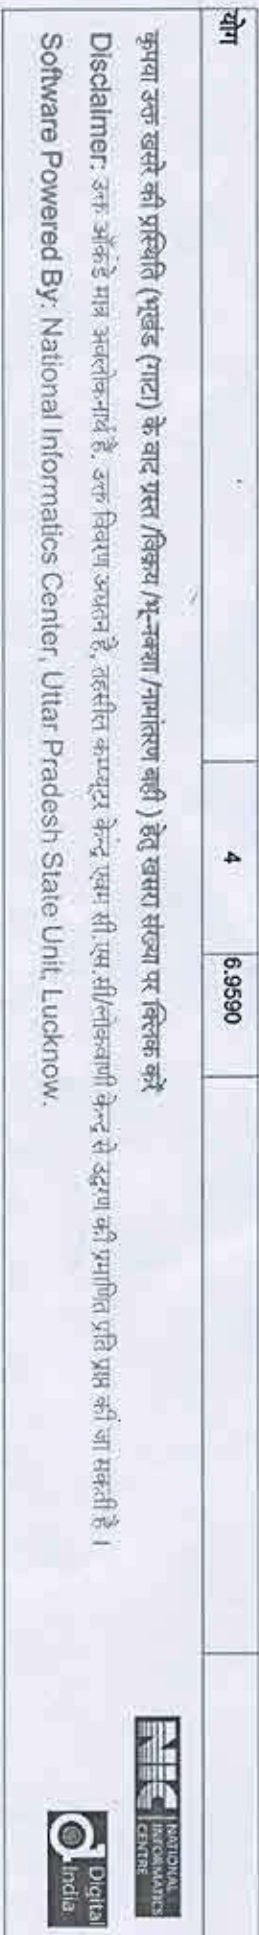 योग 4 6.9590
कृपया उक्त खसरे की प्रस्थिति (भूखंड (गाटा) के वाद ग्रस्त /विक्रय /भू-नक्शा /नामांतरण बही ) हेतु खसरा संख्या पर क्लिक करें
Disclaimer: उक्त आँकड़े मात्र अवलोकनार्थ है, उक्त विवरण अद्यतन है, तहसील कम्प्यूटर केन्द्र एवम सी.एस.सी/लोकवाणी केन्द्र से उद्धरण की प्रमाणित प्रति प्राप्त की जा सकती है ।
Software Powered By: National Informatics Center, Uttar Pradesh State Unit, Lucknow.
NIC NATIONAL
INFORMATICS
CENTRE
Digital
India